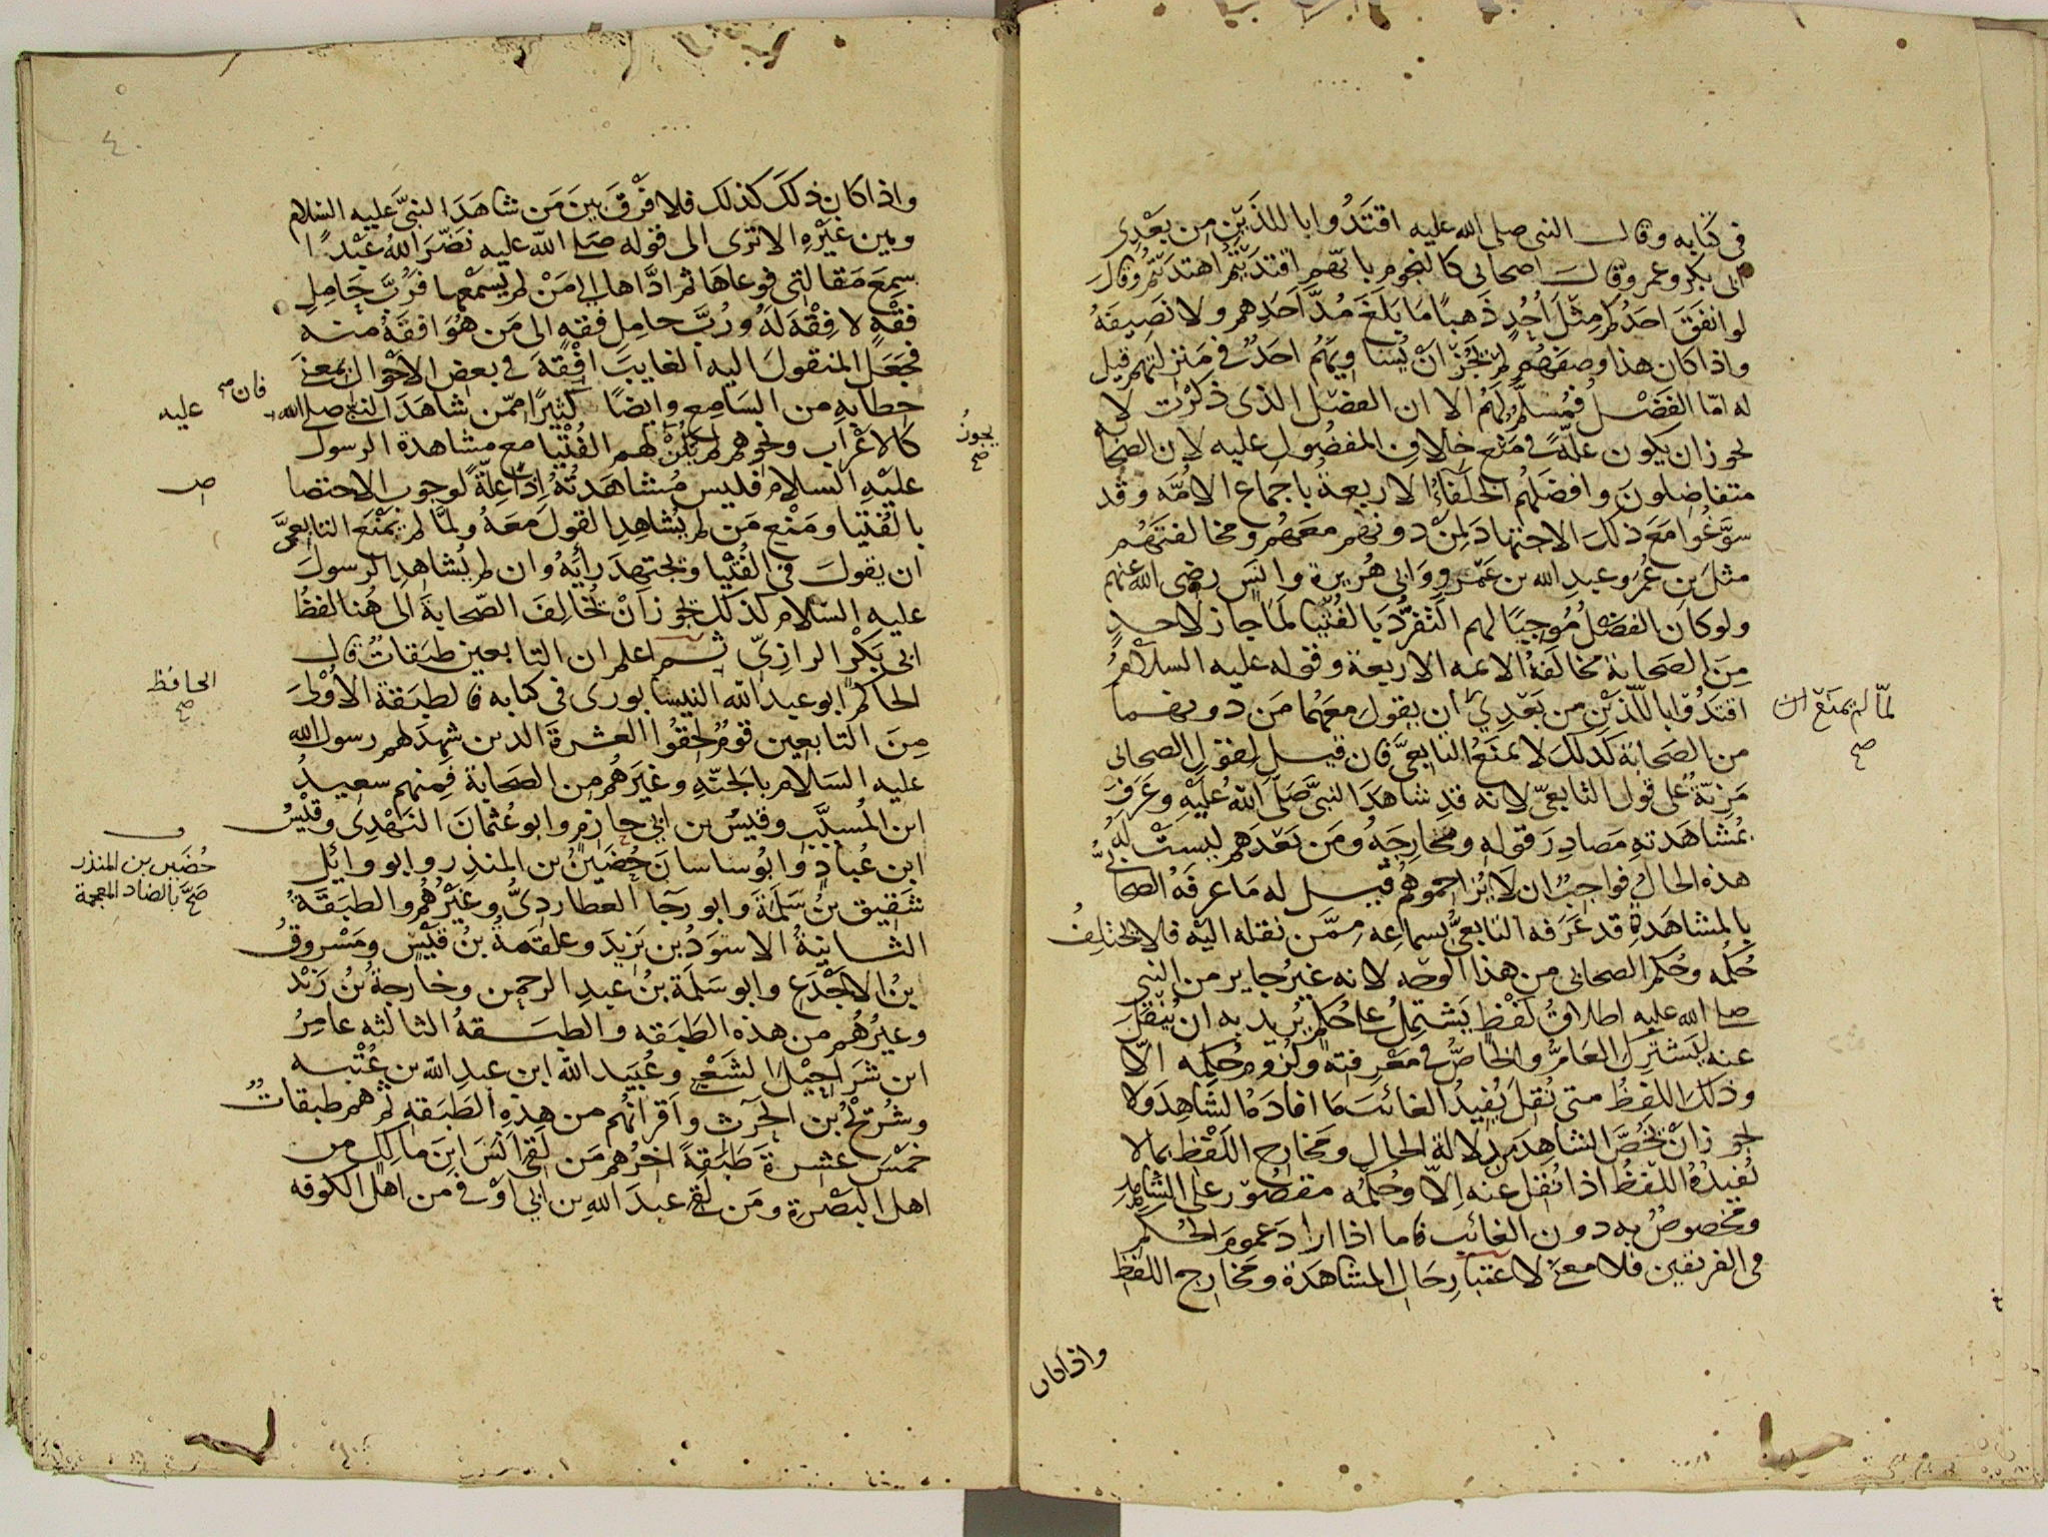 في كتابه وقال النبي صلى الله عليه اقتَدُوا باللذَيْن من بَعْدِى
ابى بكر وعمر وقال اصحابى كالنجوم بايّهم اقتدَيتُم اهتدَيتُم وقالَ
لو انفَقَ احدُكم مِثْلَ اُحُدٍ ذَهباً مَا بَلَغَ مُدَّ اَحَدِهم ولا نَصِيفَهُ
واذا كان هذا وصفَهُم لم يَجُزْ انْ يُساويَهُم احَدٌ في مَنْزِلتهم قيل
له امّا الفَضْلُ فمُسلَّم لهُم الا ان الفضْل الذى ذكرْت لا
يجوز ان يكون علّةً في مَنْع خلافِ المفضُولِ عليه لان الصحابة
متفاضِلونَ وافضلهُم الخلفَاءُ الاربعةُ باجماع الامّه وقد
سوَّغُوا مَعَ ذلكَ الاجتهادَ لِمنْ دونهم معَهُم ومخالفتَهُم
مثلَ بن عُمرَ وعبدِ الله بن عَمْرٍو وَابى هُريرة وانَس رضى الله عنهم
ولو كانَ الفضْلُ مُوجِبًا لهم التفرُّدَ بالفُتْيا لمَا جاز لاحدٍ
مِنَ الصحابة مخالفةُ الائمه الاربعة وقوله عليه السلامُ
اقتدُوْا باللّذَيْنِ من بَعْدِي أن يقولَ معَهُما مَن دونهما
لمّا لم يمنَعْ ان صح
من الصَحابة كذلكَ لا يمنَعُ التابعىَّ فان قيل لِقولِ الصحابى
مَزِيّةٌ على قول التابعىّ لانه قد شاهَدَ النبيَّ صَلّى اللهُ عليْهِ وعَرَفَ
بمُشاهَدتهِ مَصادِرَ قولهِ ومخارِجَهُ ومَن بَعْدَهم ليسَتْ لهُ
هذه الحالُ فواجبٌ ان لا يُزاحموهم قيل له مَا عرفَهُ الصحابىُّ
بالمشاهَدةِ قد عَرَفه التابعىُّ بسماعِه مِمَّن نقله اليْه فلا يختلِفُ
حُكمُه وحُكم الصحابى من هذا الوجه لانه غيرُ جايز من النبى
صلى الله عليه اطلاقُ لفْظٍ يَشتمِلُ على حُكمٍ يُريد به ان يُنْقَلَ
عنه ليَشترِك العَامُّ والخاصُّ في مَعْرفته ولزومِ حُكمِه الّا
وذلكَ اللفظُ متى نُقلَ يُفيدُ الغائبَ مَا افادَهُ الشاهِدَ ولا
يجوز انْ يَخُصَّ الشاهدَ مِن دلالة الحال ومَخارج اللفْظ بمالا
يُفيدُهُ اللفظُ اذا نُقل عنه اِلّا وحُكمُه مقصُوْر على الشاهِدِ
ومخصوصٌ به دون الغائب فاما اذا ارادَ عمومَ الحُكم
في الفريقين فلا معنى لاعتبارِ حَال المشاهَدة ومخارج اللفظ
واذا كان
٤٠
واذا كان ذلكَ كذلك فلا فَرْقَ بينَ مَن شاهَدَ النبيَّ عليه السلام
وبين غيْرِهِ الا ترى الى قوله صَلى الله عليه نَضَّرَ اللهُ عَبْدًا
سمِعَ مَقالتى فوعاها ثم ادَّاها الى مَنْ لم يَسْمَعْها فرُبَّ حَامِلِ
فقْهٍ لا فِقْهَ لهُ ورُبَّ حامِل فقهٍ الى مَن هُوَ افقهُ منه
فجعَلَ المنقولَ اليه الغايبَ افْقهَ في بعض الاحْوال بمعنى
خطابِه من السَامِع وايضًا كثيرًا ممّن شاهَدَ النبى صلى الله
فان صح عليه
كالاعْراب ونحوهم لم يكُنْ لهم الفُتْيا مع مشاهدة الرسول
يجوزُ صح
عليْهِ السلام فليس مُشاهَدتُهُ اِذًا عِلّةً لوجوب الاختصا
ص
بالفُتيا ومَنْع مَن لم يُشاهِدِ القولَ معَهُ ولمَّا لم يُمْنَع التابعىَّ
ان يقولَ في الفُتْيا ويجتهِدَ رأيَهُ وان لم يُشاهِدِ الرسولَ
عليه السلام كذلكَ يجوز انْ يُخالِفَ الصّحابةَ الى هُنا لفظُ
ابى بَكْر الرازىّ ثم اعلم ان التابعين طبَقاتٌ قال
الحاكم ابو عبد الله النيسابورى في كتابه فالطبَقةُ الاُوْلىَ
الحافظ صح
مِنَ التابعين قومٌ لَحقُوا العشرةَ الذين شهِدَ لهم رسول الله
عليه السَلام بالجنّةِ وغيرَهُم من الصحابة فمِنهم سعيدُ
ابن المُسيَّب وقيسُ بن ابي حازم وابو عُثمانَ النَهْدِى وقيْسُ
ابن عُبادٍ وابُو ساسان حُضَيْنُ بن المنذر وابو وايل
حُضَين بن المنذر صَحَّ بالضاد المعجمة
شَقيق بن سَلَمَةَ وابو رجآ العطاردىُّ وغيْرُهُم والطبَقةُ
الثانيةُ الاسوَدُ بن يزيدَ وعلقمةُ بنُ قَيْس ومَسْروقُ
بنُ الاجْدَع وابو سَلَمة بنُ عبدِ الرحمن وخارجةُ بنُ زَيْد
وغيرُهُم من هذه الطَبَقه والطبَقهُ الثالثه عامِرُ
ابن شرَاحِيْلَ الشعْبي وعُبَيد الله ابن عبدِ الله بن عُتْبه
وشُرَيحُ بن الحرث واَقرانُهُم من هذِهِ الطَبَقهِ ثم هم طبقاتٌ
خَمْسَ عشرةَ طبَقةً اخرُهم مَن لقىَ اَنَسَ ابنَ مالِكٍ من
اهل البَصْرةِ ومَن لقىَ عبدَ اللهِ بن ابي اَوْفى مِن اهل الكوفه